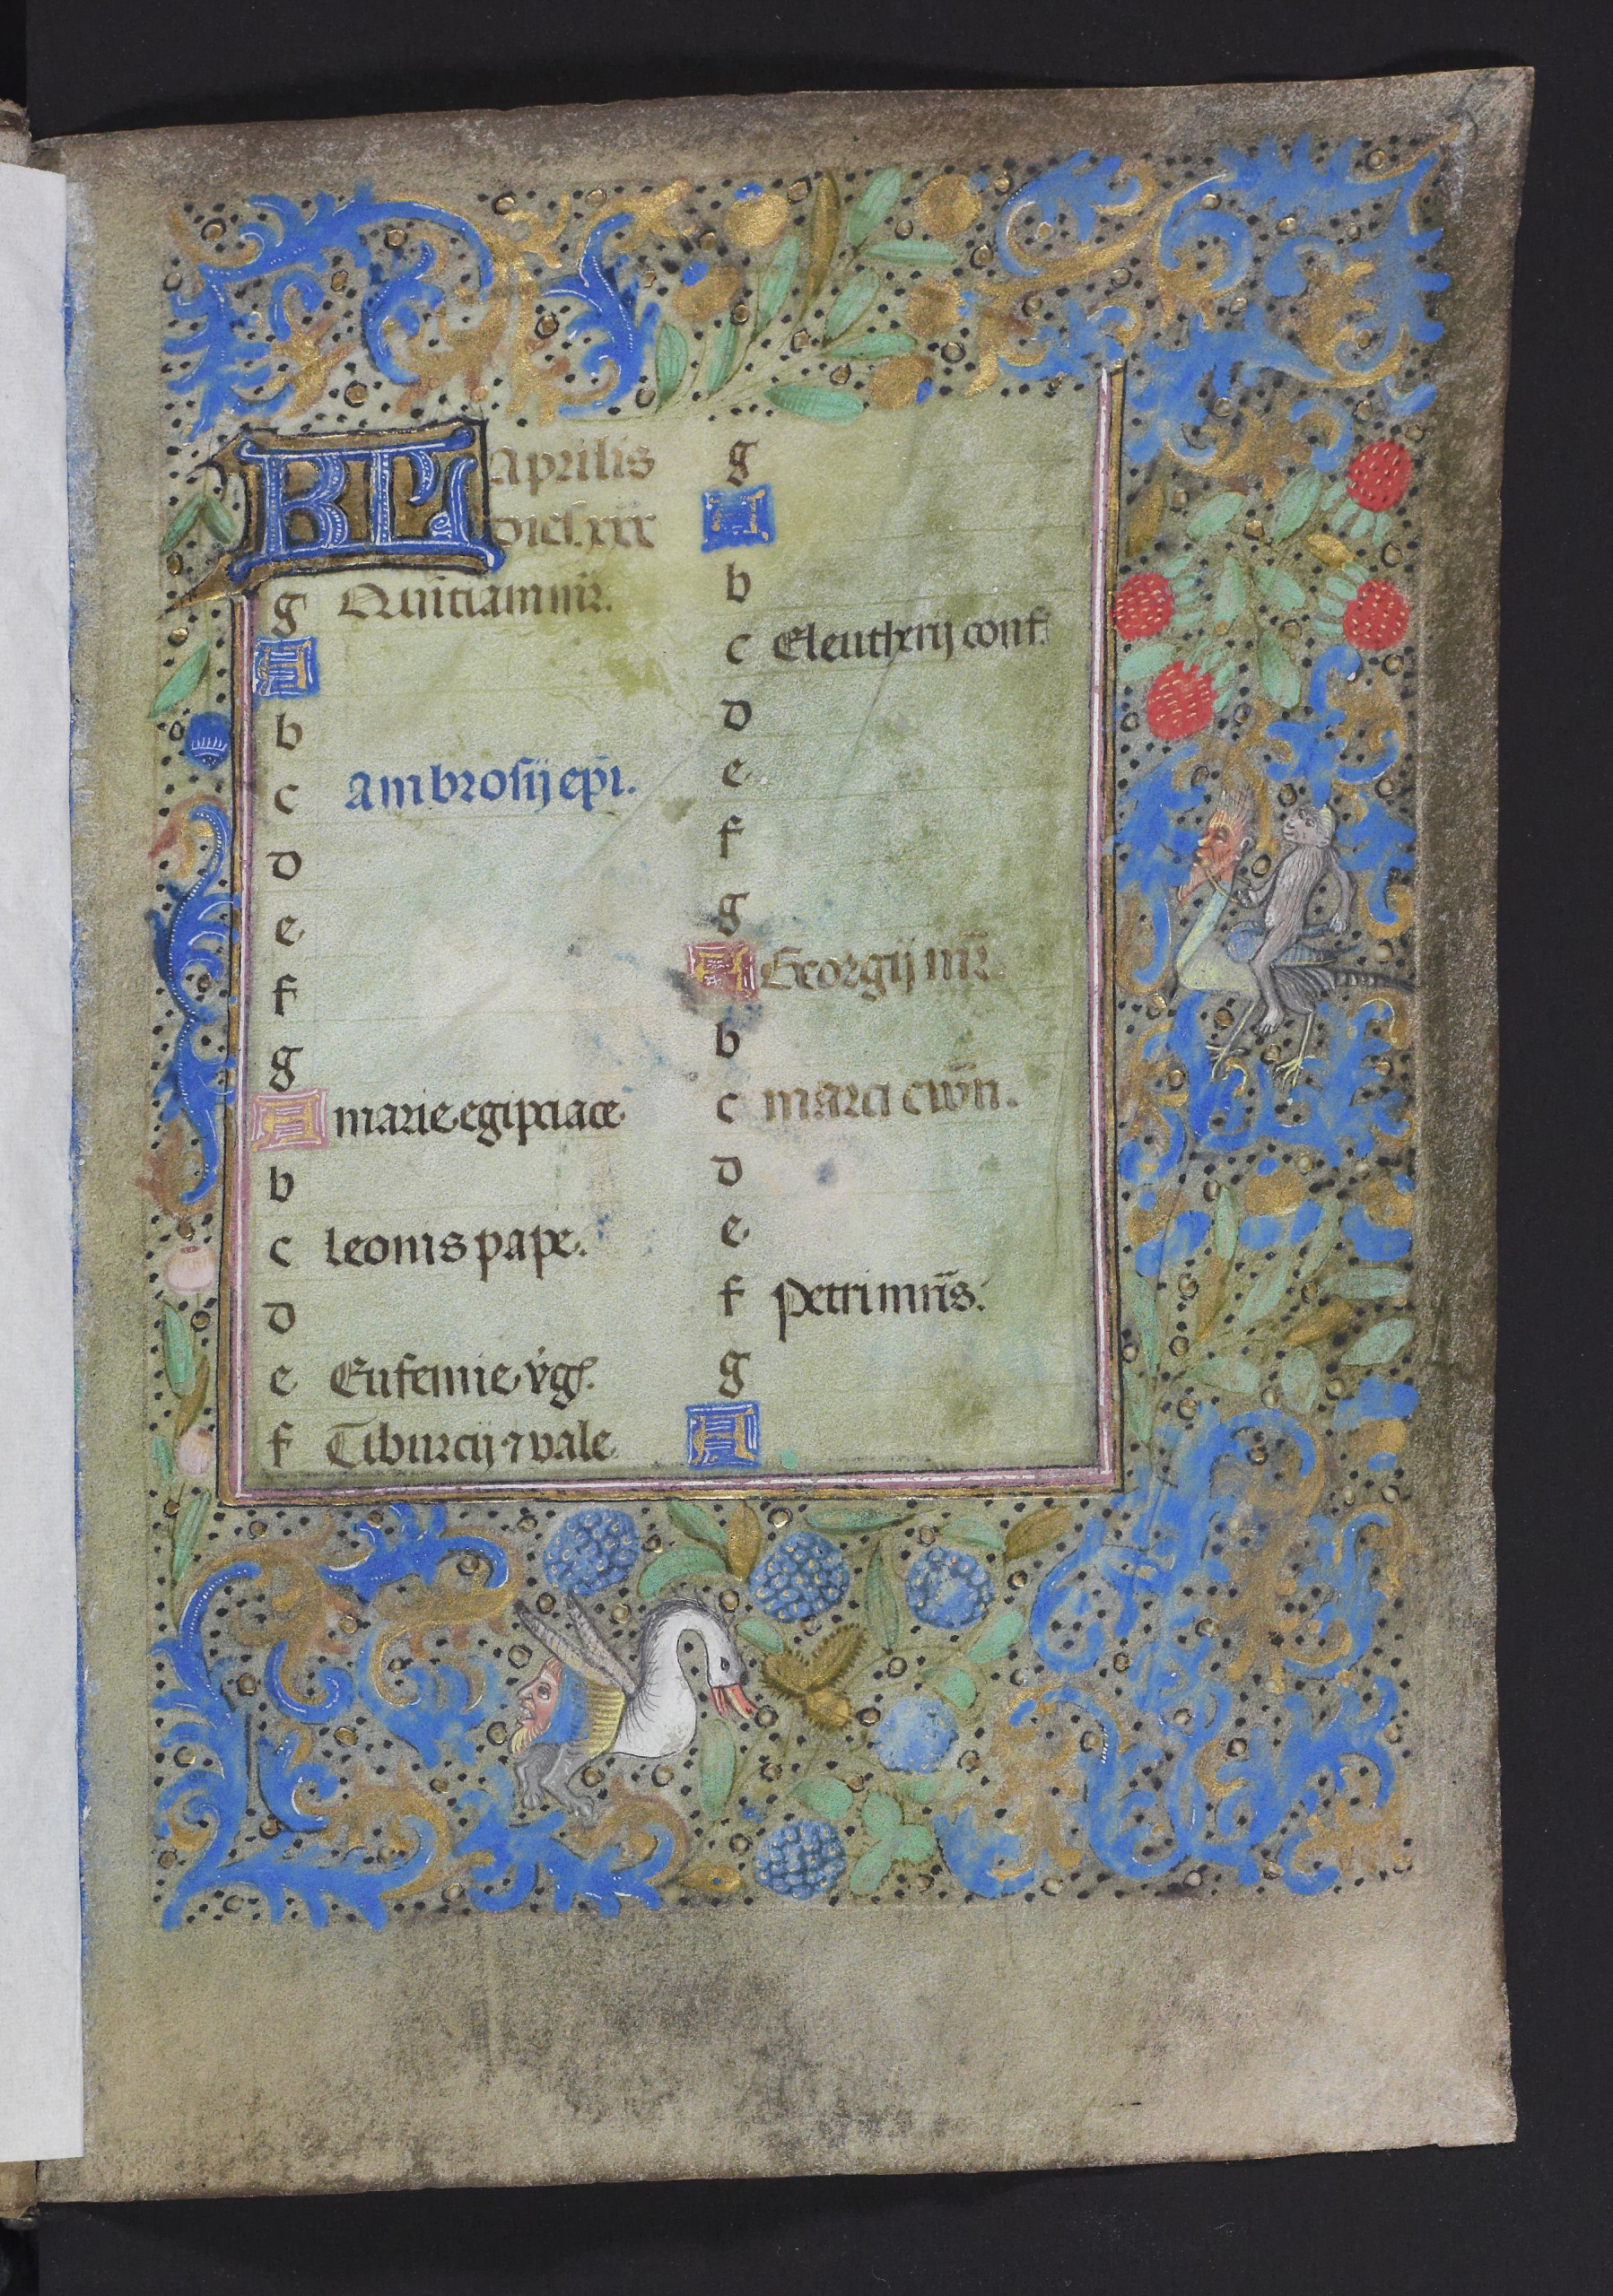 KL Aprilis
dies. xxx
g Quitiani mr̄.
A
b
c Ambrosij ep̄i.
d
e
f
g
A marie egipciace
b
c leonis pape.
d
e Eufemie v̄gı̄s.
f Tiburcij ⁊ vale
g
A
b
c Eleutherij conf.
d
e
f
g
A Georgij mr̄.
b
c marci ewā.
d
e
f Petri mr̄is.
g
A